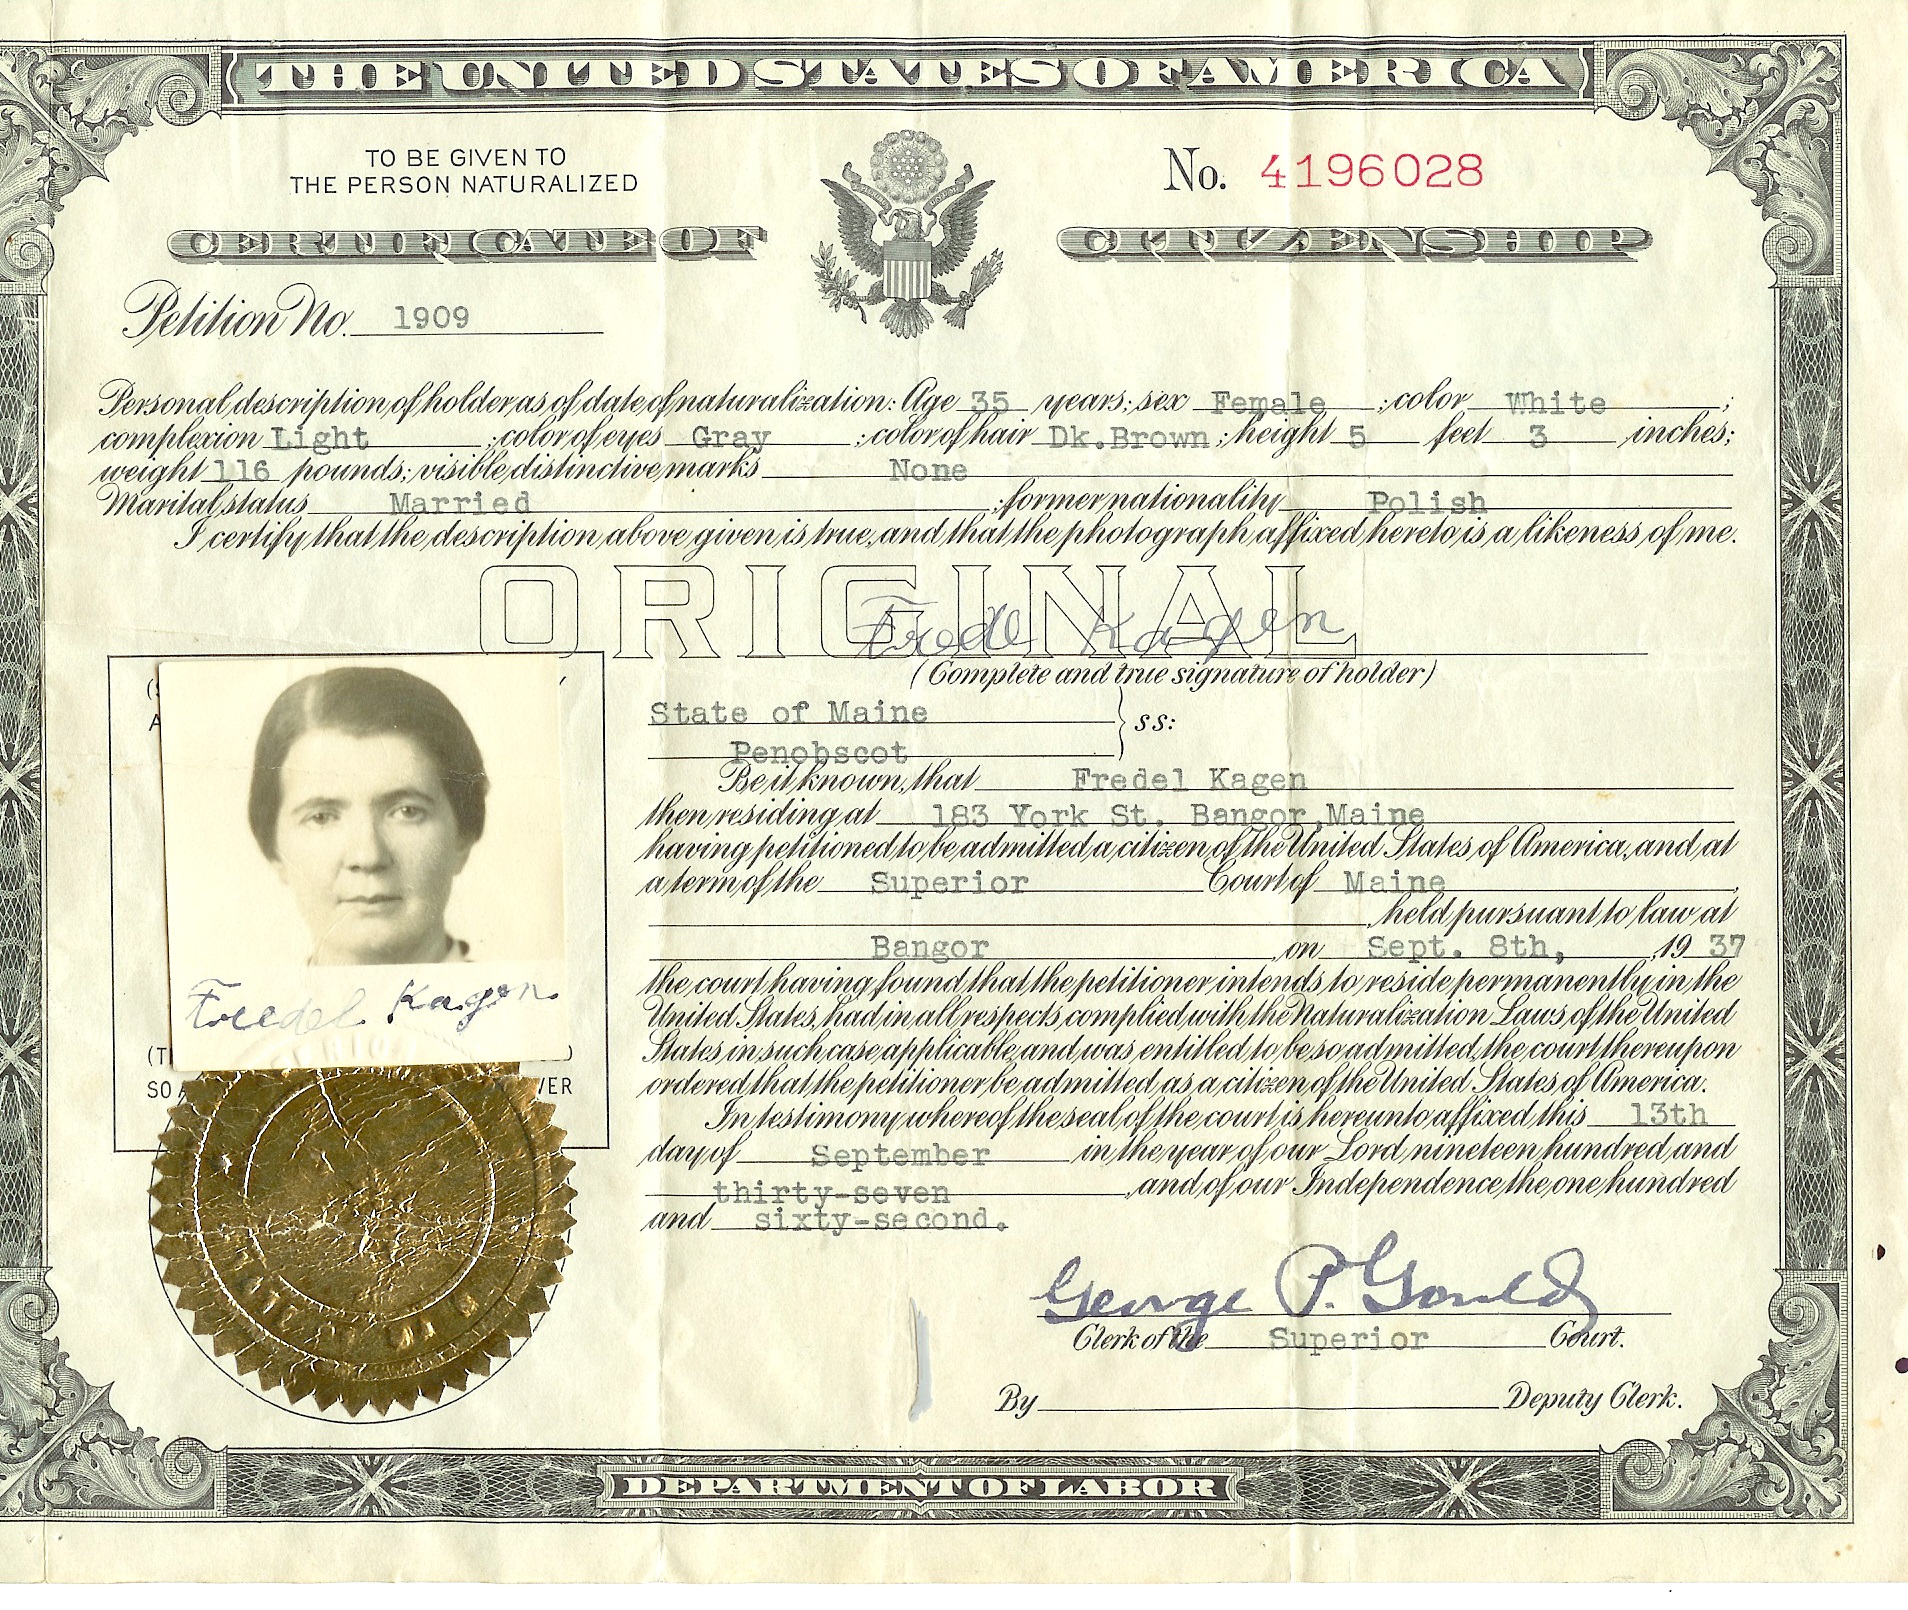 THE UNITED STATES OF AMERICA
TO BE GIVEN TO
THE PERSON NATURALIZED
No. 4196028
CERTIFICATE OF CITIZENSHIP
Petition No. 1909
Personal description of holder as of date of naturalization: Age 35 years; sex Female ; color White ;
complexion Light ; color of eyes Gray ; color of hair Dk.Brown ; height 5 feet 3 inches;
weight 116 pounds; visible distinctive marks None
Marital status Married ; former nationality Polish
I certify that the description above given is true, and that the photograph affixed hereto is a likeness of me.
ORIGINAL
Fredel Kagen
(Complete and true signature of holder)
State of Maine } ss:
Penobscot
Be it known, that Fredel Kagen
then residing at 183 York St. Bangor,Maine
having petitioned to be admitted a citizen of the United States of America, and at
a term of the Superior Court of Maine ,
held pursuant to law at
Bangor on Sept. 8th, , 19 37
the court having found that the petitioner intends to reside permanently in the
United States, had in all respects complied with the Naturalization Laws of the United
States in such case applicable, and was entitled to be so admitted, the court thereupon
ordered that the petitioner be admitted as a citizen of the United States of America.
In testimony whereof the seal of the court is hereunto affixed this 13th
day of September in the year of our Lord nineteen hundred and
thirty-seven , and of our Independence the one hundred
and sixty-second.
Fredel Kagen
SO A
VER
George P. Gould
Clerk of the Superior Court.
By Deputy Clerk.
DEPARTMENT OF LABOR